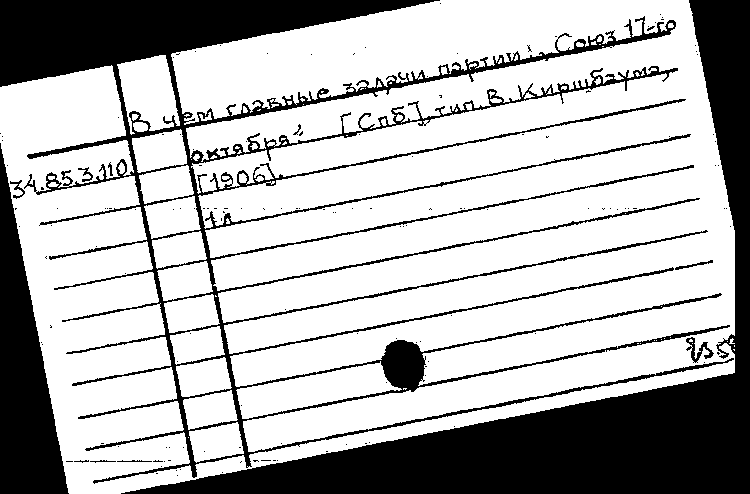 В чем главные задачи партии "Союз 17-го
октября". [Спб.], тип. В. Киршбаума,
34.85.3.110. [1906].
1 л.